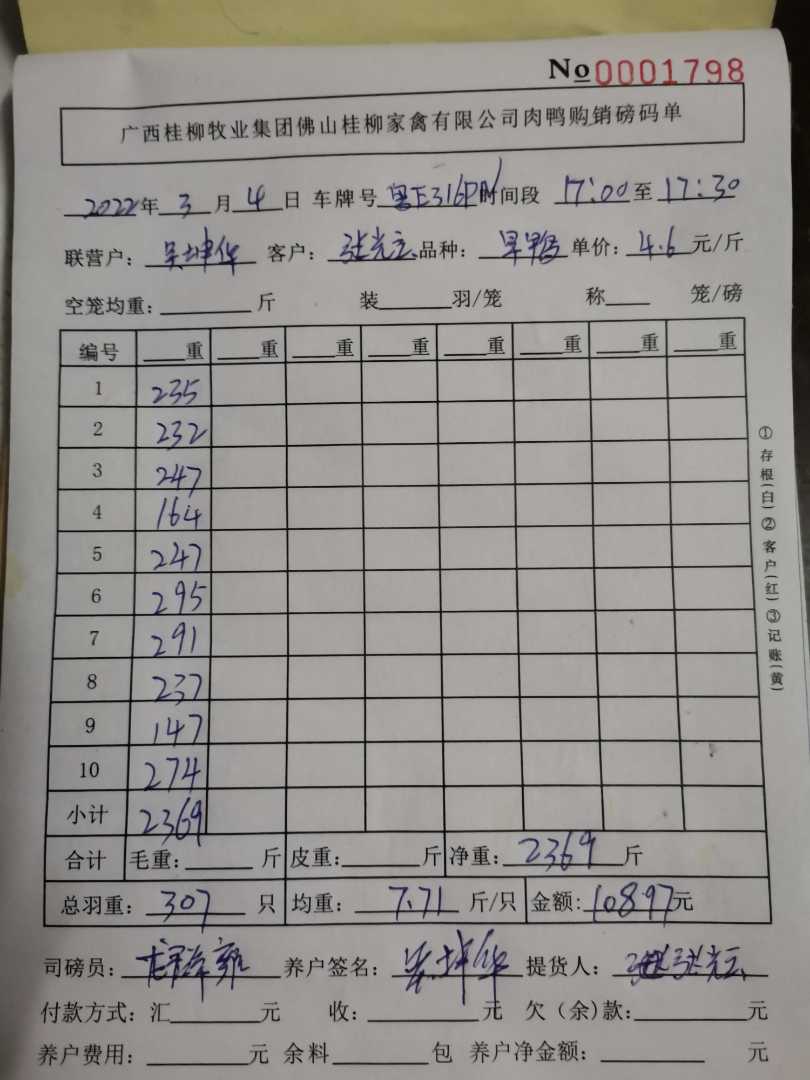 No 0001798
广西桂柳牧业集团佛山桂柳家禽有限公司肉鸭购销磅码单
2022年 3 月 4 日 车牌号 粤E316PN 时间段 17:00 至 17:30
联营户: 吴坤华 客户: 张光立 品种: 旱鸭 单价: 4.6 元/斤
空笼均重:____斤 装____羽/笼 称____笼/磅
编号 __重 __重 __重 __重 __重 __重 __重 __重
1 235
2 232
3 247
4 164
5 247
6 295
7 291
8 237
9 147
10 274
小计 2369
合计 毛重:____斤 皮重:____斤 净重: 2369 斤
总羽重: 307 只 均重: 7.71 斤/只 金额: 10897元
司磅员: 养户签名: 吴坤华 提货人: 张光立
付款方式: 汇____元 收:____元 欠(余)款:____元
养户费用:____元 余料____包 养户净金额:____元
①存根(白)②客户(红)③记账(黄)